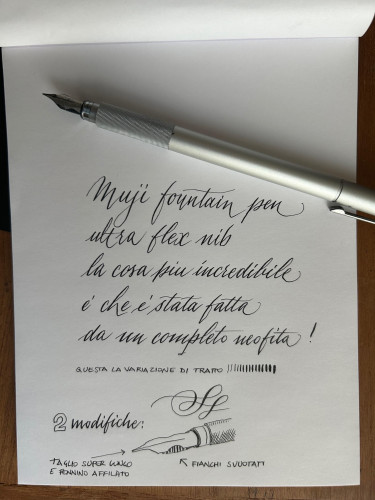 Muji fountain pen
ultra flex nib
la cosa più incredibile
é che é stata fatta
da un completo neofita!
QUESTA LA VARIAZIONE DI TRATTO
2 modifiche:
TAGLIO SUPER LUNGO
E PENNINO AFFILATO
FIANCHI SVUOTATI